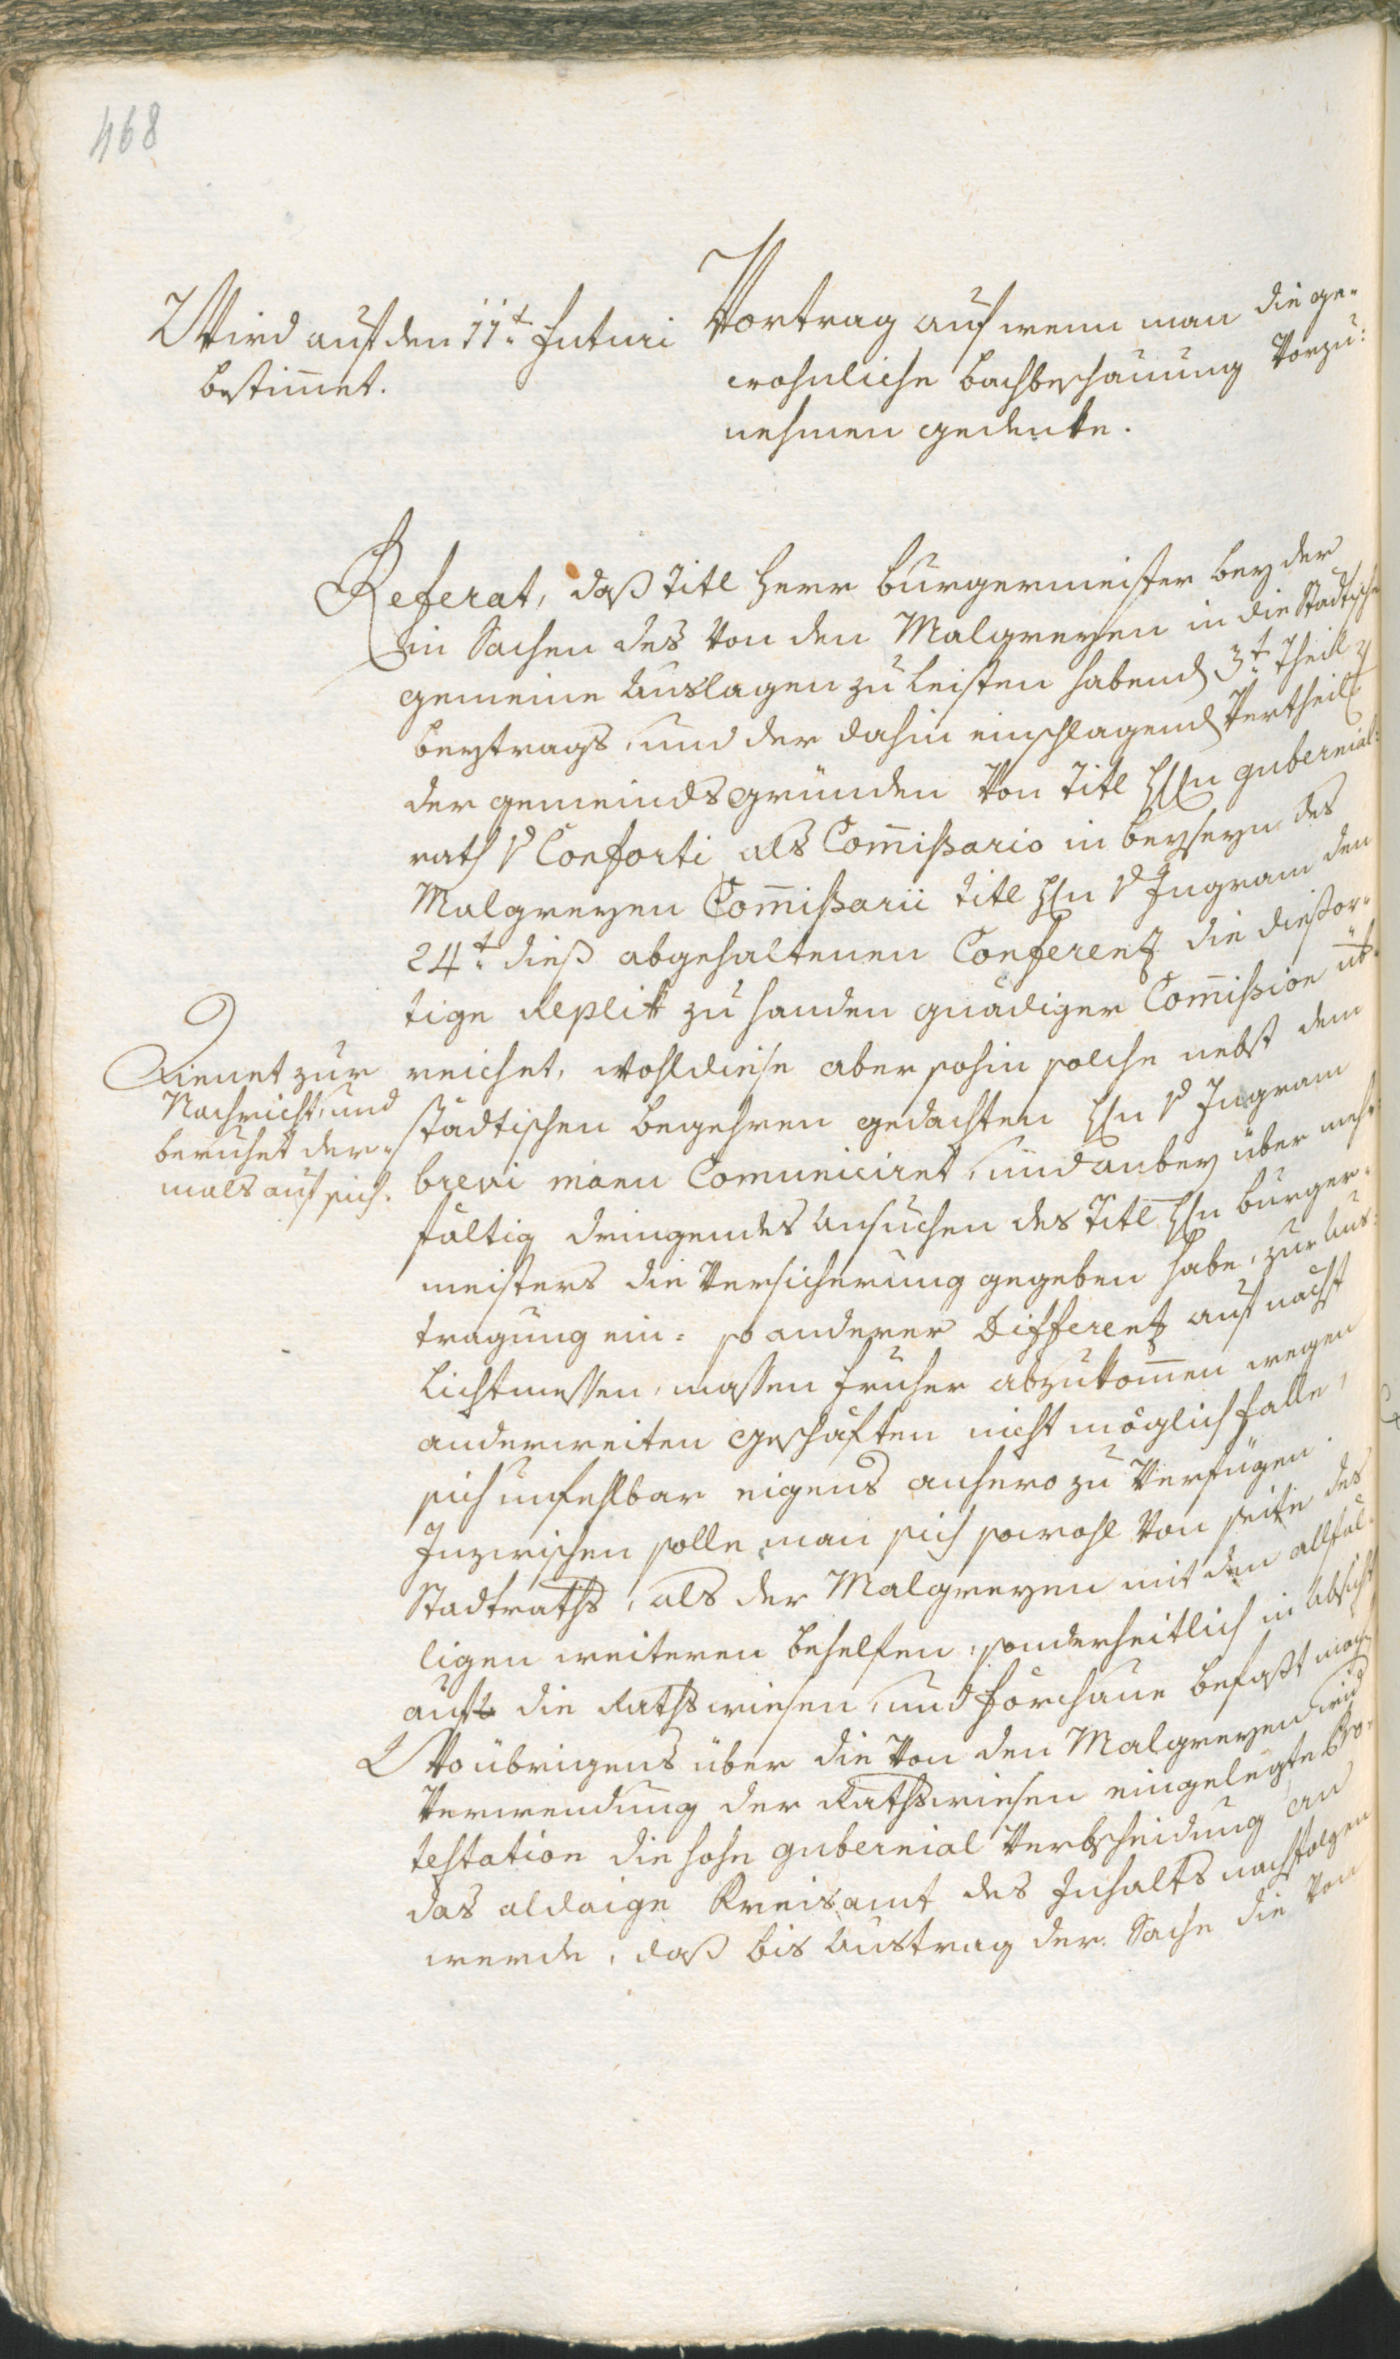 468
Wird auf den 11t. futuri
bestim̄et.
Vortrag auf wenn man die ge-
wohnliche bachbeschauung Vorzu:
nehmen gedenke.
Referat, daß titl herr burgermeister bey der
in Sachen des Von den Malgreyen in die Stadtische
gemeine Auslagen zu leisten habend 3t. Theil
beytrags, und der dahin einschlagend Vertheil
der gemeindsgründen Von titl Hrn gubernial:
rath V Conforti als Com̄ißario in beyseyn des
Malgreyen Com̄ißarii titl Hrn V Ingram den
24t. dieß abgehaltenen Conferenz die dießor-
tige Replik zu handen gnädiger Com̄ißion üb-
reichet, wohldiese aber sohin solche nebst dem
städtischen begehren gedachten Hrn V Ingram
brevi manu Comuniciret, und anbey über meh-
fältig dringendes Ansuchen des Titl Hrn burger-
meisters die Versicherung gegeben habe, zur Aus-
tragung ein- so anderer Differenz auf nächst
Lichtmessen, massen früher abzukom̄en wegen
anderweiten geschäften nicht möglich falle,
sich unfehlbar eigens anhero zu Verfügen.
Inzwischen solle man sich sowohl Von seite des
Stadtraths, als der Malgreyen mit den allfäl-
ligen weiteren behelfen, sonderheitlich in Absicht
auf die Rathswiesen, und förchaue befaßt mach
Wo übrigens über die Von den Malgreyen wid
Verwendung der Rathswiesen eingelegte Pro-
testation die hohe gubernial Verbscheidung an
das aldaige Kreisamt des Inhalts nachfolgen
werde, daß bis Austrag der Sache die Von
Dienet zur
Nachricht, und
beruhet der-
mals auf sich.